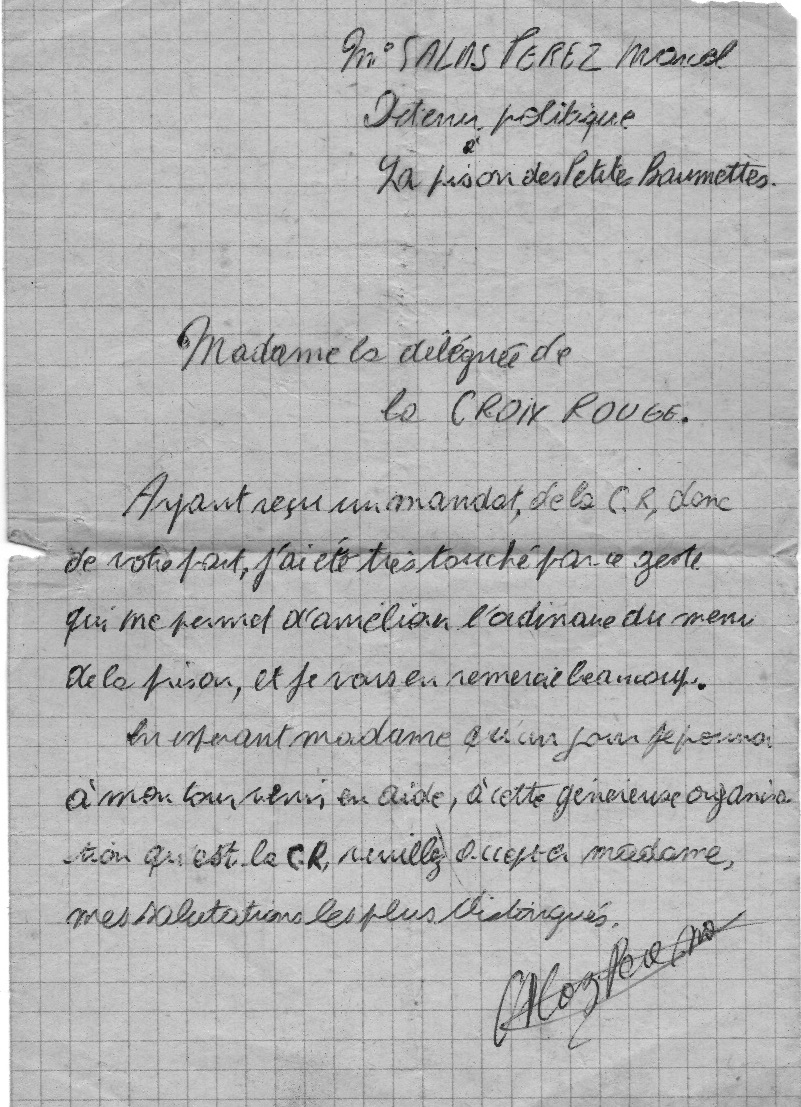 Mr SALAS PEREZ Marcel
Détenu politique
à
La prison des Petites Baumettes.
Madame la déléguée de
la CROIX ROUGE.
Ayant reçu un mandat, de la C.R, donc
de votre part, j'ai été très touché par ce geste
qui me permet d'améliorer l'ordinaire du menu
de la prison, et je vous en remercie beaucoup.
En espérant madame qu'un jour je pourrai
à mon tour venir en aide, à cette généreuse organisa-
tion qu'est la C.R, veuillez accepter madame,
mes salutations les plus distingués.